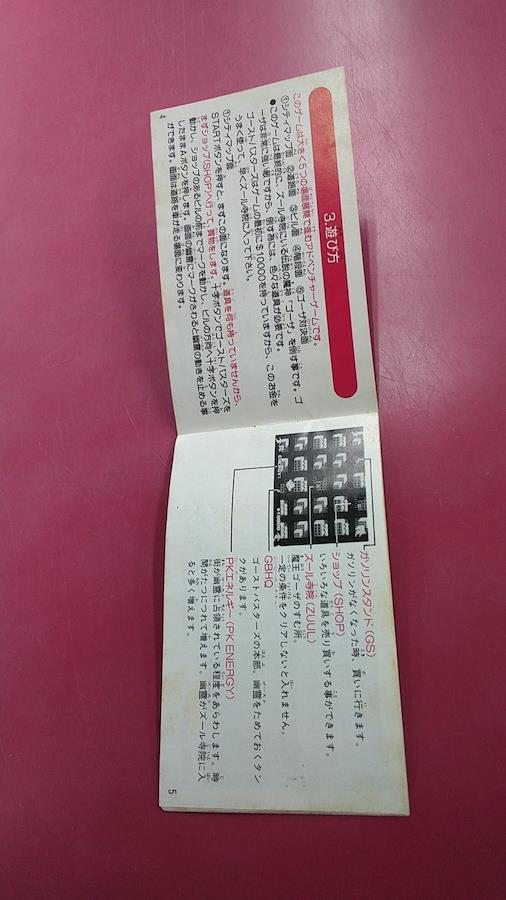 3.遊び方
このゲームは大きく5つの場面展開で進むアドベンチャーゲームです。
①シティマップ面 ②道路面 ③ビル面 ④階段面 ⑤ゴーザ対決面
●このゲームは最終的に、ズール寺院にいる伝説の魔神「ゴーザ」を倒す事です。ゴ
ーザは非常に強い敵ですから、倒す為には、色々な道具が必要です。
ゴーストバスターズはゲームの最初に$10000を持っていますから、このお金を
うまく使って、早くズール寺院に入って下さい。
①シティマップ面
STARTボタンを押すと、まずこの面になります。道具を何も持っていませんから、
まずショップ(SHOP)へ行って、買物をします。十字ボタンでゴーストバスターズを
動かし、ショップのあるビルの前までマークを動かし、ビルの方向へ十字ボタンを押
したままAボタンを押します。画面の幽霊にマークがさわると幽霊の動きを止める事
ができます。画面は道路を車が走る場面に変わります。
4
ガソリンスタンド(GS)
ガソリンがなくなった時、買いに行きます。
ショップ(SHOP)
いろいろな道具を売り買いする事ができます。
ズール寺院(ZUUL)
魔王ゴーザのすむ所。
一定の条件をクリアしないと入れません。
GBHQ
ゴーストバスターズの本部。幽霊をためておくタン
クがあります。
PKエネルギー(PK ENERGY)
街が幽霊に占領されている程度をあらわします。時
間がたつにつれて増えます。幽霊がズール寺院に入
ると多く増えます。
5